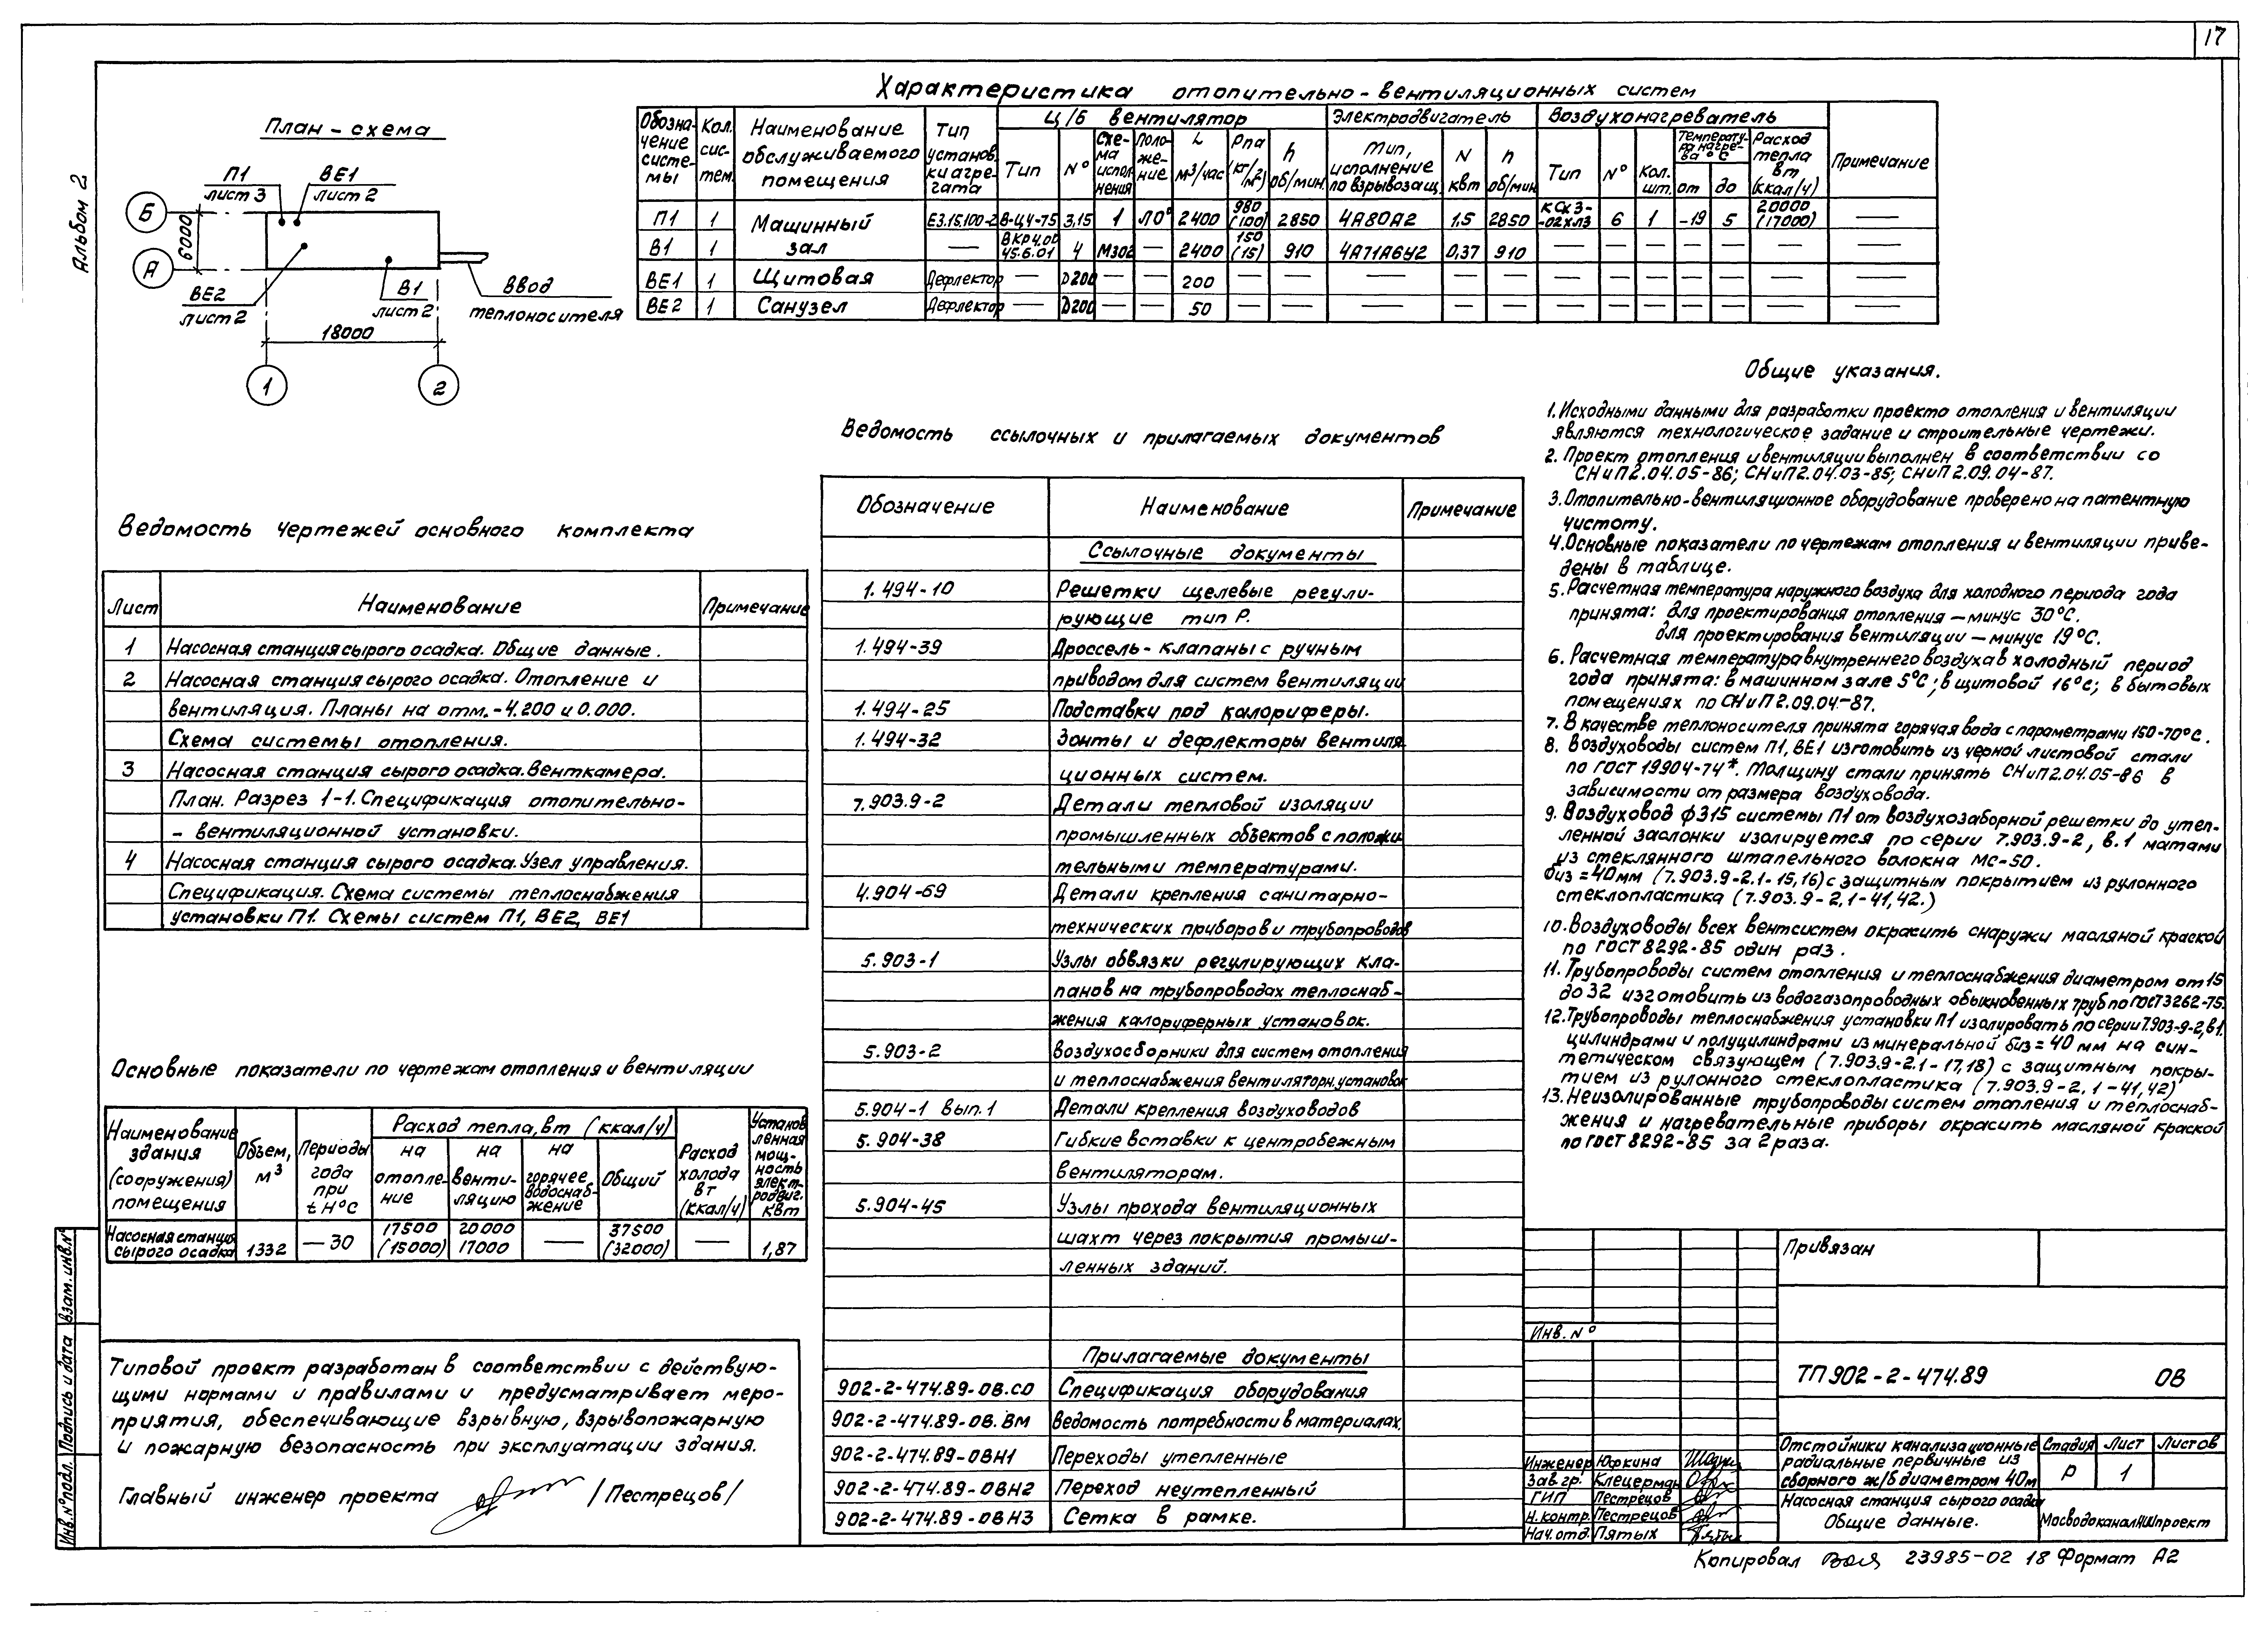 17
Альбом 2
План-схема
П1
лист 3
ВЕ1
лист 2
Б
А
6000
ВЕ2
лист 2
В1
лист 2
Ввод
теплоносителя
18000
1
2
Характеристика отопительно-вентиляционных систем
Обозначение системы | Кол. систем. | Наименование обслуживаемого помещения | Тип установки агрегата | Ц/б вентилятор | Электродвигатель | Воздухонагреватель | Примечание
Тип | N° | Схема исполнения | Положение | L м³/час | Pпа (кг/м²) | h об/мин. | Тип, исполнение по взрывозащ. | N квт | n об/мин | Тип | N° | Кол. шт. | Температура нагрева °С от | до | Расход тепла вт (ккал/ч)
П1 | 1 | Машинный зал | Е3.15.100-2 | В-Ц4-75 | 3,15 | 1 | Л0° | 2400 | 980 (100) | 2850 | 4А80А2 | 1,5 | 2850 | КСк3-02ХЛ3 | 6 | 1 | -19 | 5 | 20000 (17000) | —
В1 | 1 | — | ВКР4.00 45.6.01 | 4 | М302 | — | 2400 | 150 (15) | 910 | 4А71А6У2 | 0,37 | 910 | — | — | — | — | — | — | —
ВЕ1 | 1 | Щитовая | Дефлектор | — | D200 | — | — | 200 | — | — | — | — | — | — | — | — | — | — | — | —
ВЕ2 | 1 | Санузел | Дефлектор | — | D200 | — | — | 50 | — | — | — | — | — | — | — | — | — | — | — | —
Ведомость чертежей основного комплекта
Лист | Наименование | Примечание
1 | Насосная станция сырого осадка. Общие данные.
2 | Насосная станция сырого осадка. Отопление и
вентиляция. Планы на отм. -4.200 и 0.000.
Схема системы отопления.
3 | Насосная станция сырого осадка. Венткамера.
План. Разрез 1-1. Спецификация отопительно-
- вентиляционной установки.
4 | Насосная станция сырого осадка. Узел управления.
Спецификация. Схема системы теплоснабжения
установки П1. Схемы систем П1, ВЕ2, ВЕ1
Основные показатели по чертежам отопления и вентиляции
Наименование здания (сооружения) помещения | Объем, м³ | Периоды года при tн°С | Расход тепла, вт (ккал/ч) | Расход холода вт (ккал/ч) | Установленная мощность электродвиг. квт
на отопление | на вентиляцию | на горячее водоснабжение | Общий
Насосная станция сырого осадка | 1332 | —30 | 17500 (15000) | 20000 17000 | — | 37500 (32000) | — | 1,87
Типовой проект разработан в соответствии с действую-
щими нормами и правилами и предусматривает меро-
приятия, обеспечивающие взрывную, взрывопожарную
и пожарную безопасность при эксплуатации здания.
Главный инженер проекта /Пестрецов/
Взам. инв. N°
Подпись и дата
Инв. N° подл.
Ведомость ссылочных и прилагаемых документов
Обозначение | Наименование | Примечание
Ссылочные документы
1.494-10 | Решетки щелевые регули-
рующие тип Р.
1.494-39 | Дроссель-клапаны с ручным
приводом для систем вентиляции
1.494-25 | Подставки под калориферы.
1.494-32 | Зонты и дефлекторы вентиля
ционных систем.
7.903.9-2 | Детали тепловой изоляции
промышленных объектов с положи
тельными температурами.
4.904-69 | Детали крепления санитарно-
технических приборов и трубопроводов
5.903-1 | Узлы обвязки регулирующих кла-
панов на трубопроводах теплоснаб-
жения калориферных установок.
5.903-2 | Воздухосборники для систем отопления
и теплоснабжения вентиляторн. установок
5.904-1 вып. 1 | Детали крепления воздуховодов
5.904-38 | Гибкие вставки к центробежным
вентиляторам.
5.904-45 | Узлы прохода вентиляционных
шахт через покрытия промыш-
ленных зданий.
Прилагаемые документы
902-2-474.89-ОВ.СО | Спецификация оборудования
902-2-474.89-ОВ.ВМ | Ведомость потребности в материалах.
902-2-474.89-ОВН1 | Переходы утепленные
902-2-474.89-ОВН2 | Переход неутепленный
902-2-474.89-ОВН3 | Сетка в рамке.
Общие указания.
1. Исходными данными для разработки проекта отопления и вентиляции
являются технологическое задание и строительные чертежи.
2. Проект отопления и вентиляции выполнен в соответствии со
СНиП 2.04.05-86; СНиП 2.04.03-85; СНиП 2.09.04-87.
3. Отопительно-вентиляционное оборудование проверено на патентную
чистоту.
4. Основные показатели по чертежам отопления и вентиляции приве-
дены в таблице.
5. Расчетная температура наружного воздуха для холодного периода года
принята: для проектирования отопления — минус 30°С.
для проектирования вентиляции — минус 19°С.
6. Расчетная температура внутреннего воздуха в холодный период
года принята: в машинном зале 5°С; в щитовой 16°С; в бытовых
помещениях по СНиП 2.09.04-87.
7. В качестве теплоносителя принята горячая вода с параметрами 150-70°С.
8. Воздуховоды систем П1, ВЕ1 изготовить из черной листовой стали
по ГОСТ 19904-74*. Толщину стали принять СНиП 2.04.05-86 в
зависимости от размера воздуховода.
9. Воздуховод ф315 системы П1 от воздухозаборной решетки до утеп-
ленной заслонки изолируется по серии 7.903.9-2, в.1 матами
из стеклянного штапельного волокна МС-50.
δиз = 40мм (7.903.9-2.1-15,16) с защитным покрытием из рулонного
стеклопластика (7.903.9-2,1-41,42.)
10. Воздуховоды всех вентсистем окрасить снаружи масляной краской
по ГОСТ 8292-85 один раз.
11. Трубопроводы систем отопления и теплоснабжения диаметром от 15
до 32 изготовить из водогазопроводных обыкновенных труб по ГОСТ 3262-75.
12. Трубопроводы теплоснабжения установки П1 изолировать по серии 7.903-9-2, в1.
цилиндрами и полуцилиндрами из минеральной δиз = 40 мм на син-
тетическом связующем (7.903.9-2.1-17,18) с защитным покры-
тием из рулонного стеклопластика (7.903.9-2,1-41,42)
13. Неизолированные трубопроводы систем отопления и теплоснаб-
жения и нагревательные приборы окрасить масляной краской
по ГОСТ 8292-85 за 2 раза.
Привязан
Инв. N°
ТП 902-2-474.89 ОВ
Инженер Юркина
Зав гр. Клецерман
ГИП Пестрецов
Н. контр. Пестрецов
Нач. отд. Пятых
Отстойники канализационные
радиальные первичные из
сборного ж/б диаметром 40м
Стадия | Лист | Листов
Р | 1
Насосная станция сырого осадка
Общие данные.
МосводоканалНИИпроект
Копировал 23985-02 18 Формат А2